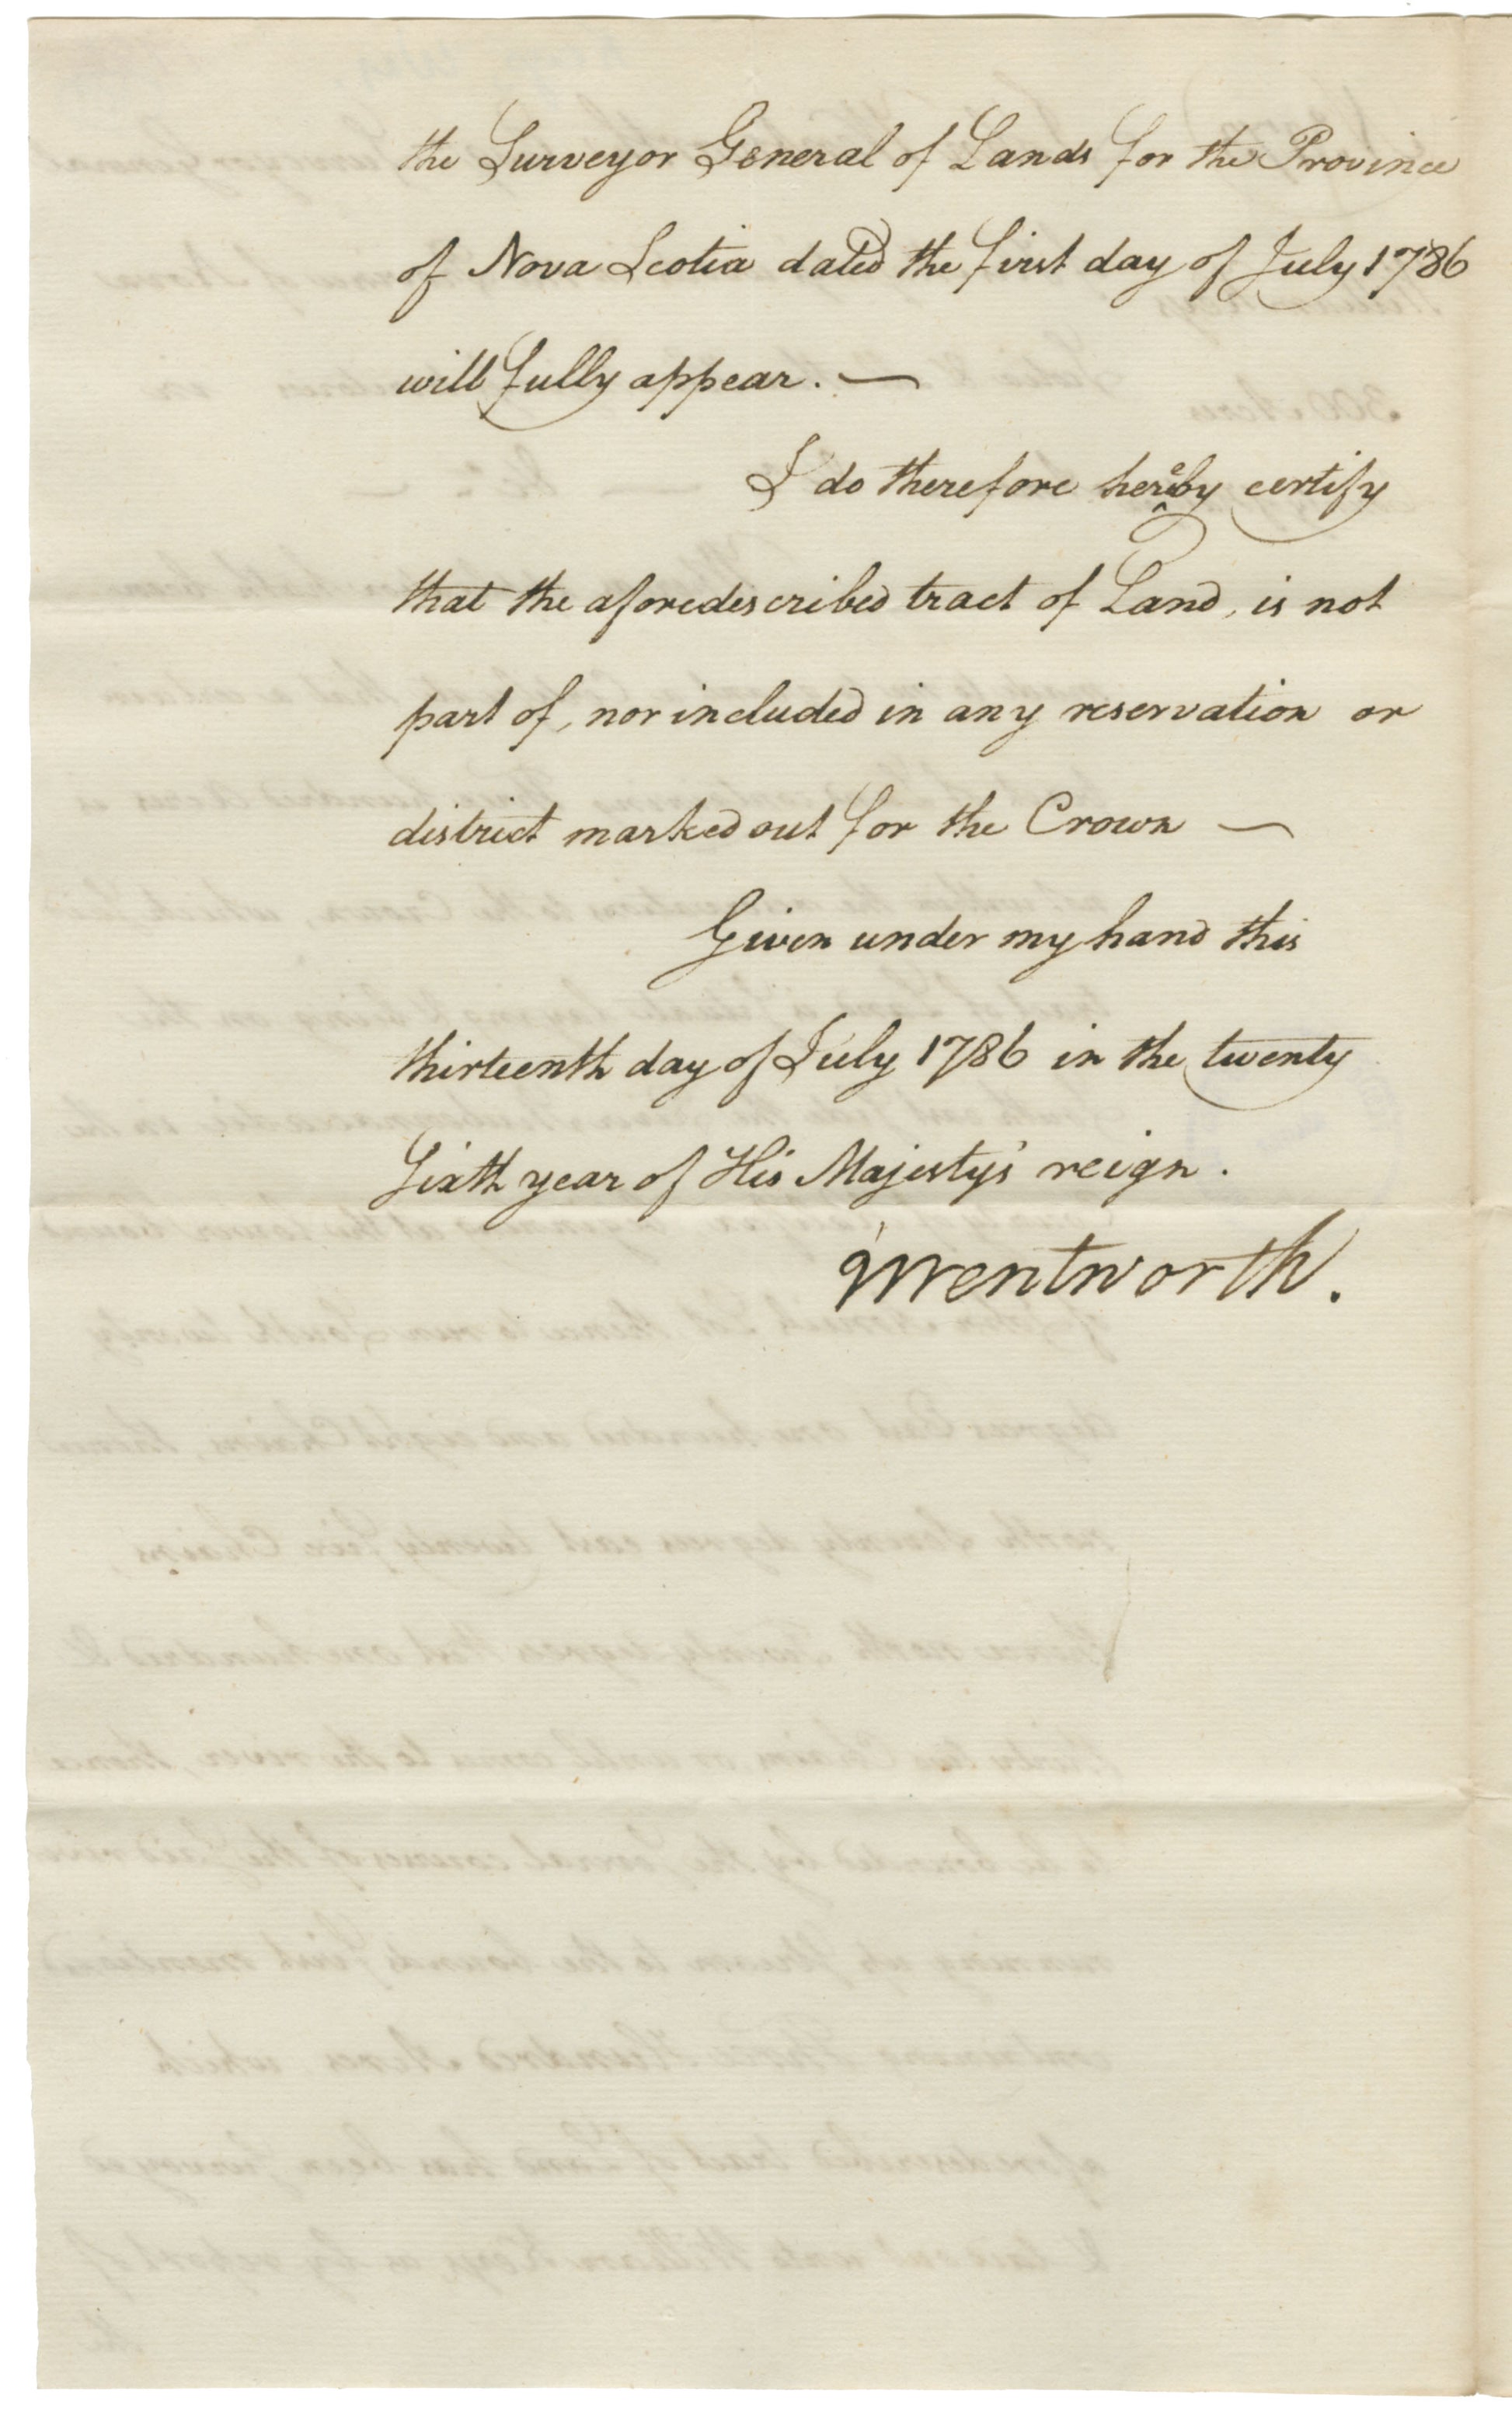 the Surveyor General of Lands for the Province
of Nova Scotia dated the first day of July 1786
will fully appear. —
I do therefore hereby certify
that the aforedescribed tract of Land, is not
part of, nor included in any reservation or
district marked out for the Crown —
Given under my hand this
thirteenth day of July 1786 in the twenty
Sixth year of His Majesty's reign.
JWentworth.